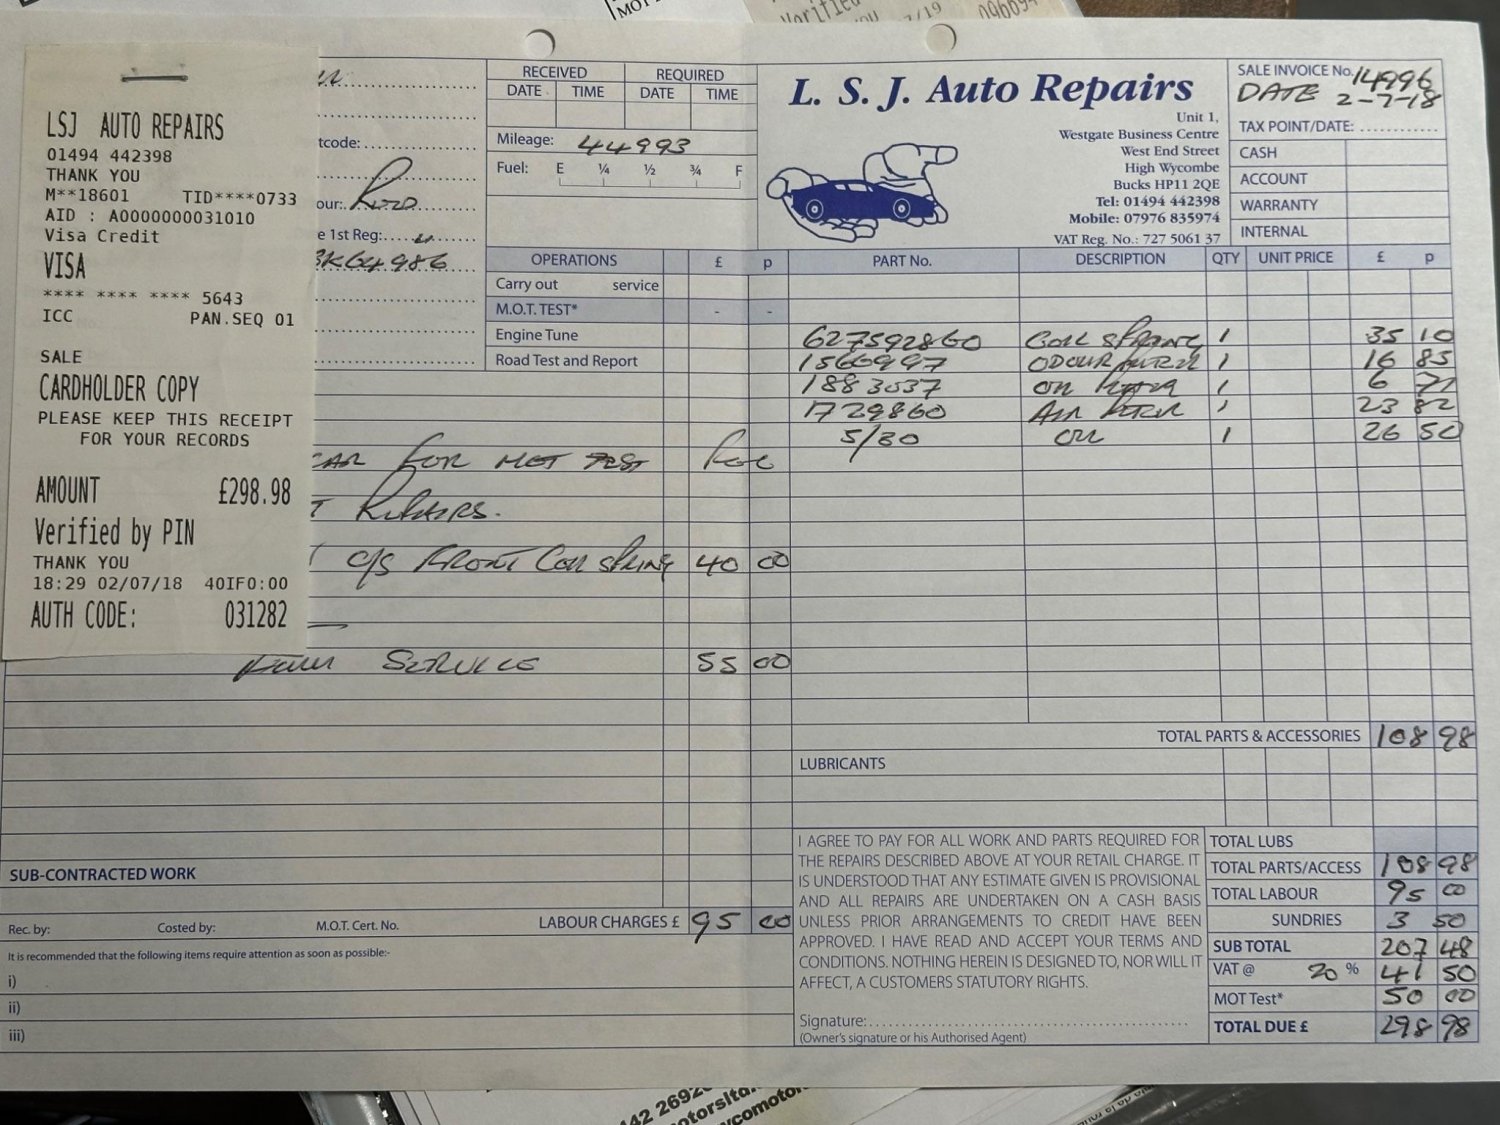 LSJ AUTO REPAIRS
01494 442398
THANK YOU
M**18601 TID****0733
AID : A0000000031010
Visa Credit
VISA
**** **** **** 5643
ICC PAN.SEQ 01
SALE
CARDHOLDER COPY
PLEASE KEEP THIS RECEIPT
FOR YOUR RECORDS
AMOUNT £298.98
Verified by PIN
THANK YOU
18:29 02/07/18 40IF0:00
AUTH CODE: 031282
tcode:
our:
e 1st Reg:
RECEIVED REQUIRED
DATE TIME DATE TIME
Mileage: 44993
Fuel: E ¼ ½ ¾ F
L. S. J. Auto Repairs
Unit 1,
Westgate Business Centre
West End Street
High Wycombe
Bucks HP11 2QE
Tel: 01494 442398
Mobile: 07976 835974
VAT Reg. No.: 727 5061 37
SALE INVOICE No. 14996
DATE 2-7-18
TAX POINT/DATE:
CASH
ACCOUNT
WARRANTY
INTERNAL
OPERATIONS £ p
Carry out service
M.O.T. TEST* - -
Engine Tune
Road Test and Report
CAR FOR MOT TEST
REPAIRS.
O/S FRONT COIL SPRING 40 00
SERVICE 55 00
PART No. DESCRIPTION QTY UNIT PRICE £ p
COIL SPRING 1 35 10
1566997 1 16 85
1883037 1 6 71
1729860 AIR FILTER 1 23 82
5/30 OIL 1 26 50
TOTAL PARTS & ACCESSORIES 108 98
LUBRICANTS
SUB-CONTRACTED WORK
Rec. by: Costed by: M.O.T. Cert. No. LABOUR CHARGES £ 95 00
It is recommended that the following items require attention as soon as possible:-
i)
ii)
iii)
I AGREE TO PAY FOR ALL WORK AND PARTS REQUIRED FOR
THE REPAIRS DESCRIBED ABOVE AT YOUR RETAIL CHARGE. IT
IS UNDERSTOOD THAT ANY ESTIMATE GIVEN IS PROVISIONAL
AND ALL REPAIRS ARE UNDERTAKEN ON A CASH BASIS
UNLESS PRIOR ARRANGEMENTS TO CREDIT HAVE BEEN
APPROVED. I HAVE READ AND ACCEPT YOUR TERMS AND
CONDITIONS. NOTHING HEREIN IS DESIGNED TO, NOR WILL IT
AFFECT, A CUSTOMERS STATUTORY RIGHTS.
Signature:
(Owner's signature or his Authorised Agent)
TOTAL LUBS
TOTAL PARTS/ACCESS 108 98
TOTAL LABOUR 95 00
SUNDRIES 3 50
SUB TOTAL 207 48
VAT @ 20 % 41 50
MOT Test* 50 00
TOTAL DUE £ 298 98